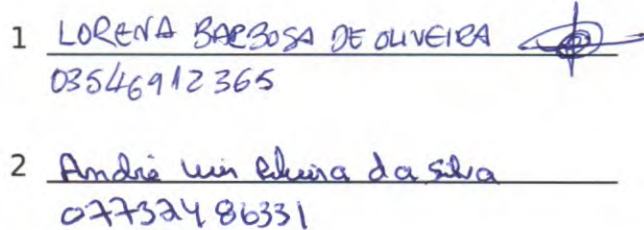 1 LORENA BARBOSA DE OLIVEIRA
03546912365
2 André Luis da Silva
07732486331